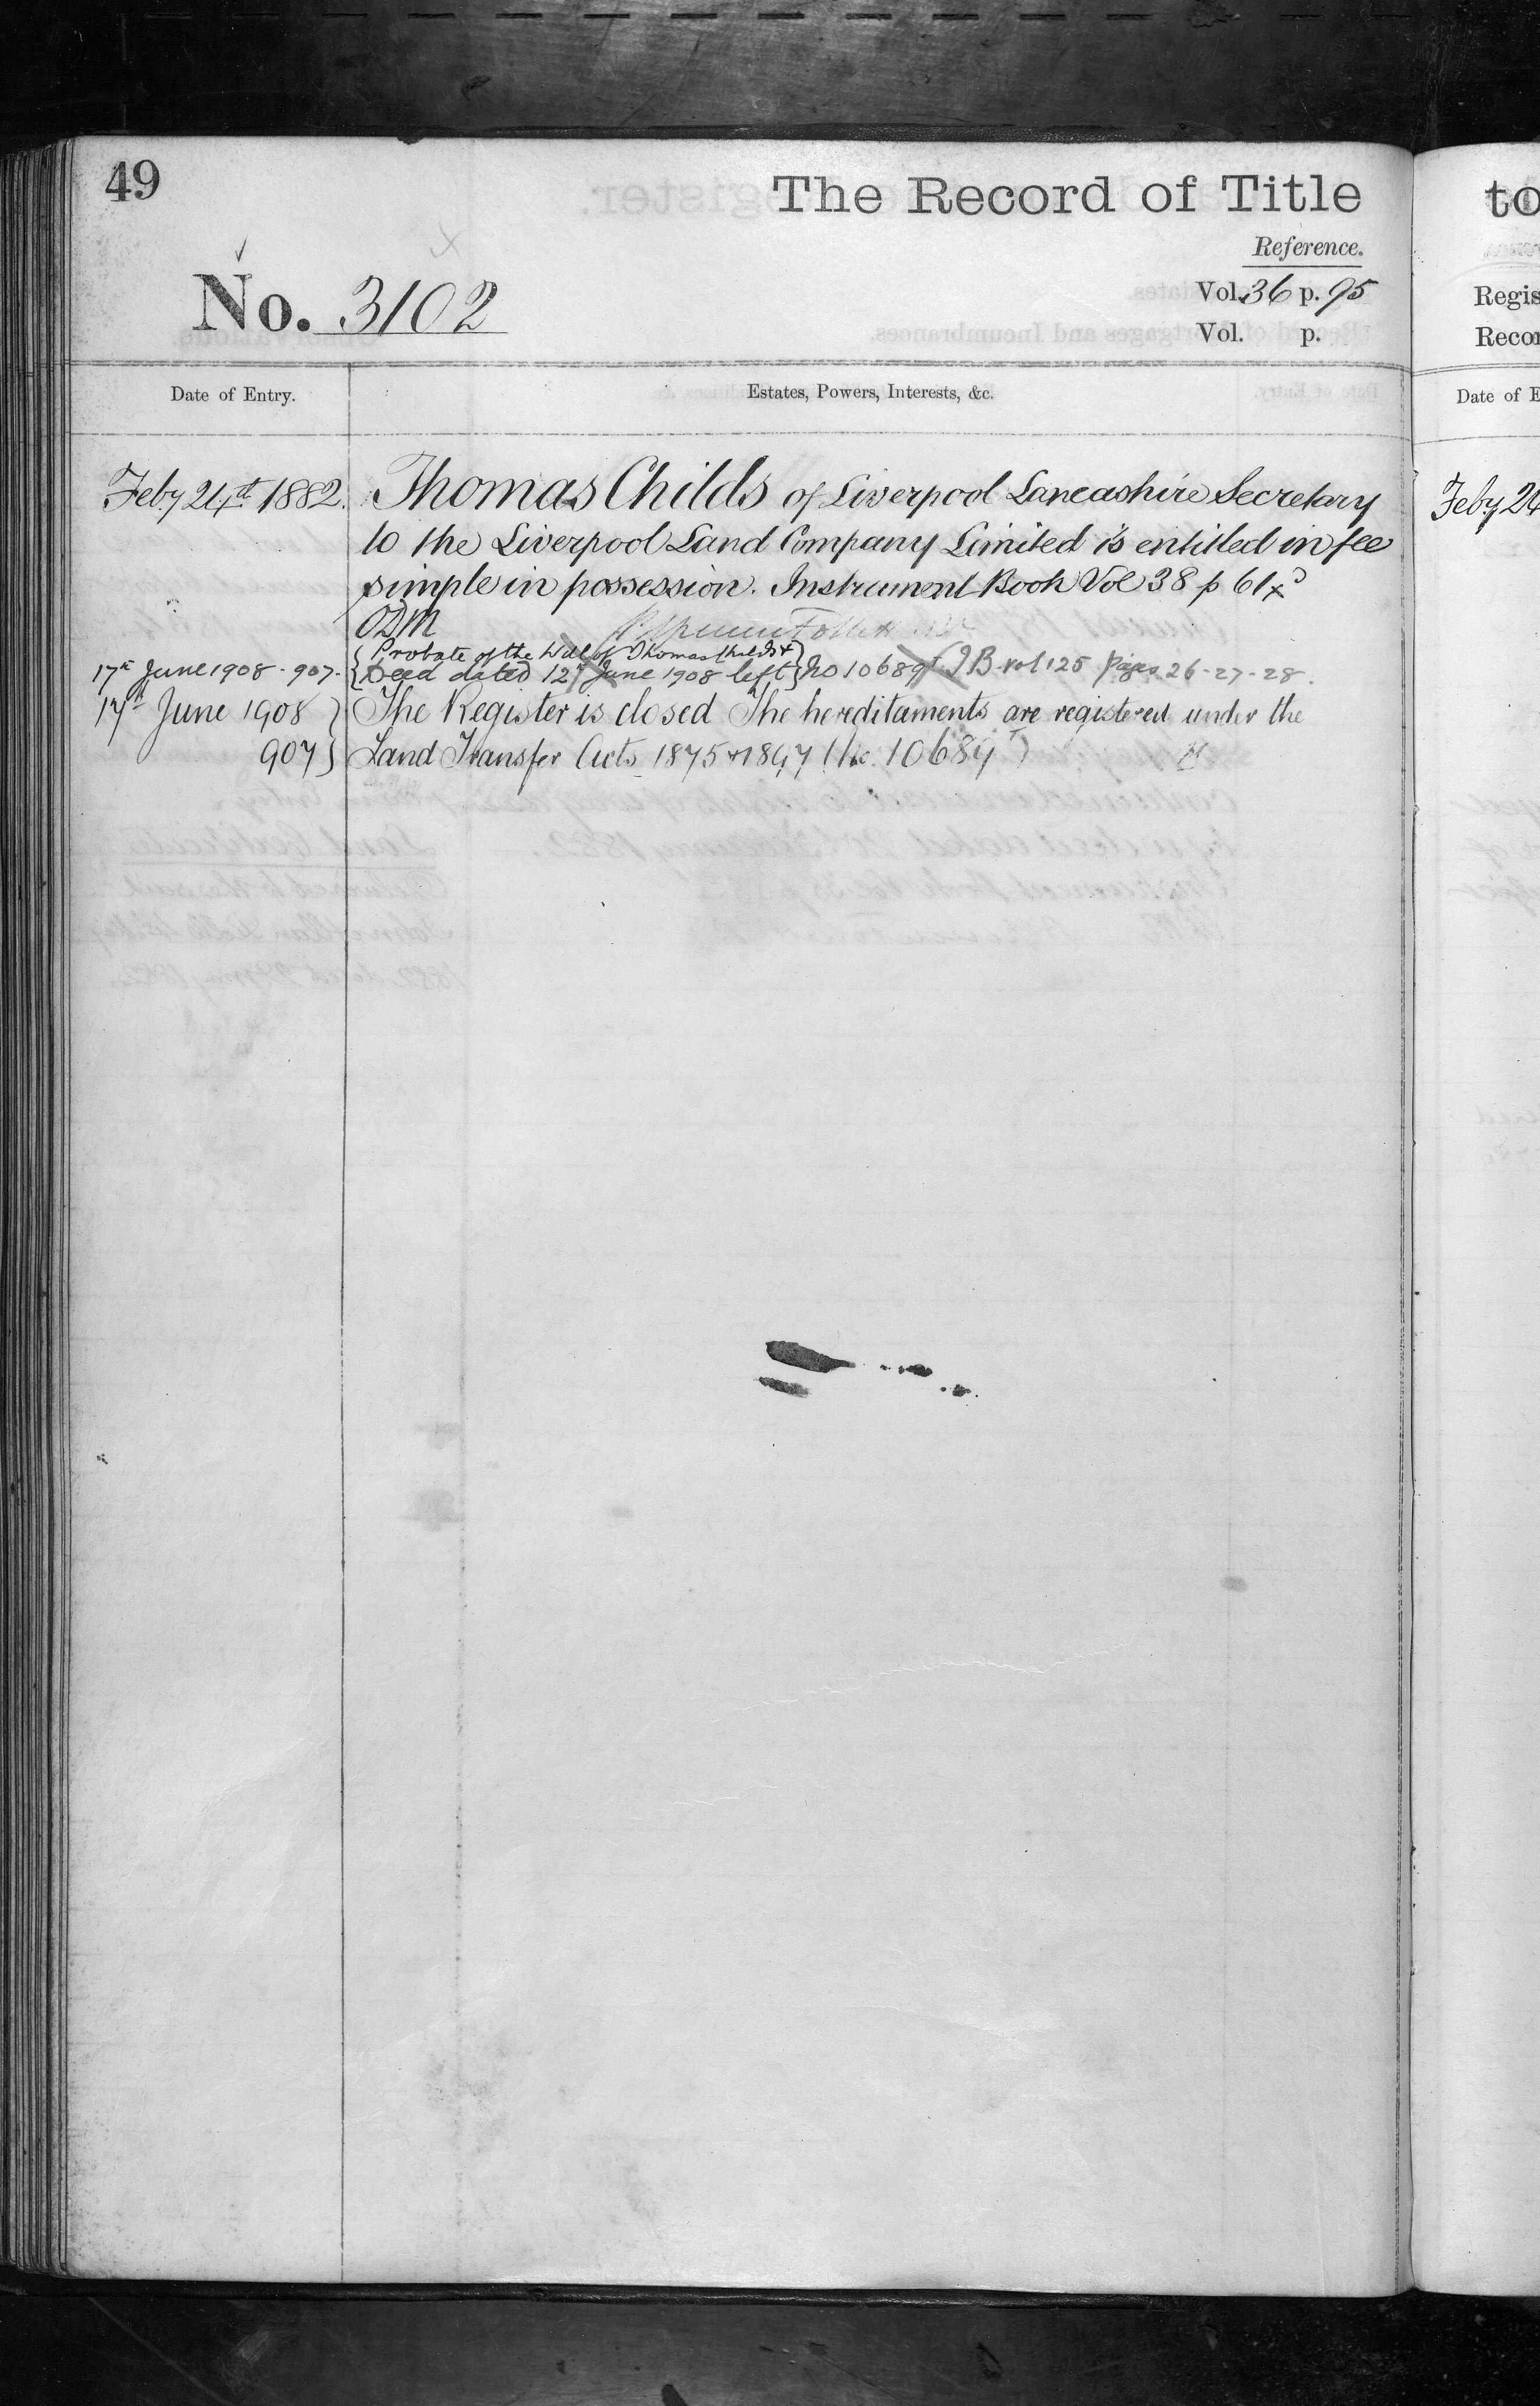 49
The Record of Title
Reference.
No. 3102
Vol. 36 p. 95
Vol. p.
Date of Entry.
Estates, Powers, Interests, &c.
Feby 24th 1882.
Thomas Childs of Liverpool Lancashire Secretary
to the Liverpool Land Company Limited is entitled in fee
simple in possession. Instrument Book Vol 38 p 61
ODM
Probate of the Will of Thomas Childs &
17th June 1908 - 907.
Deed dated 12th June 1908 left No 10689 I B vol 125 pages 26-27-28.
17th June 1908
The Register is closed The hereditaments are registered under the
907
Land Transfer Acts 1875 & 1897 (No. 10689)
to
Regis
Recor
Date of E
Feby 24